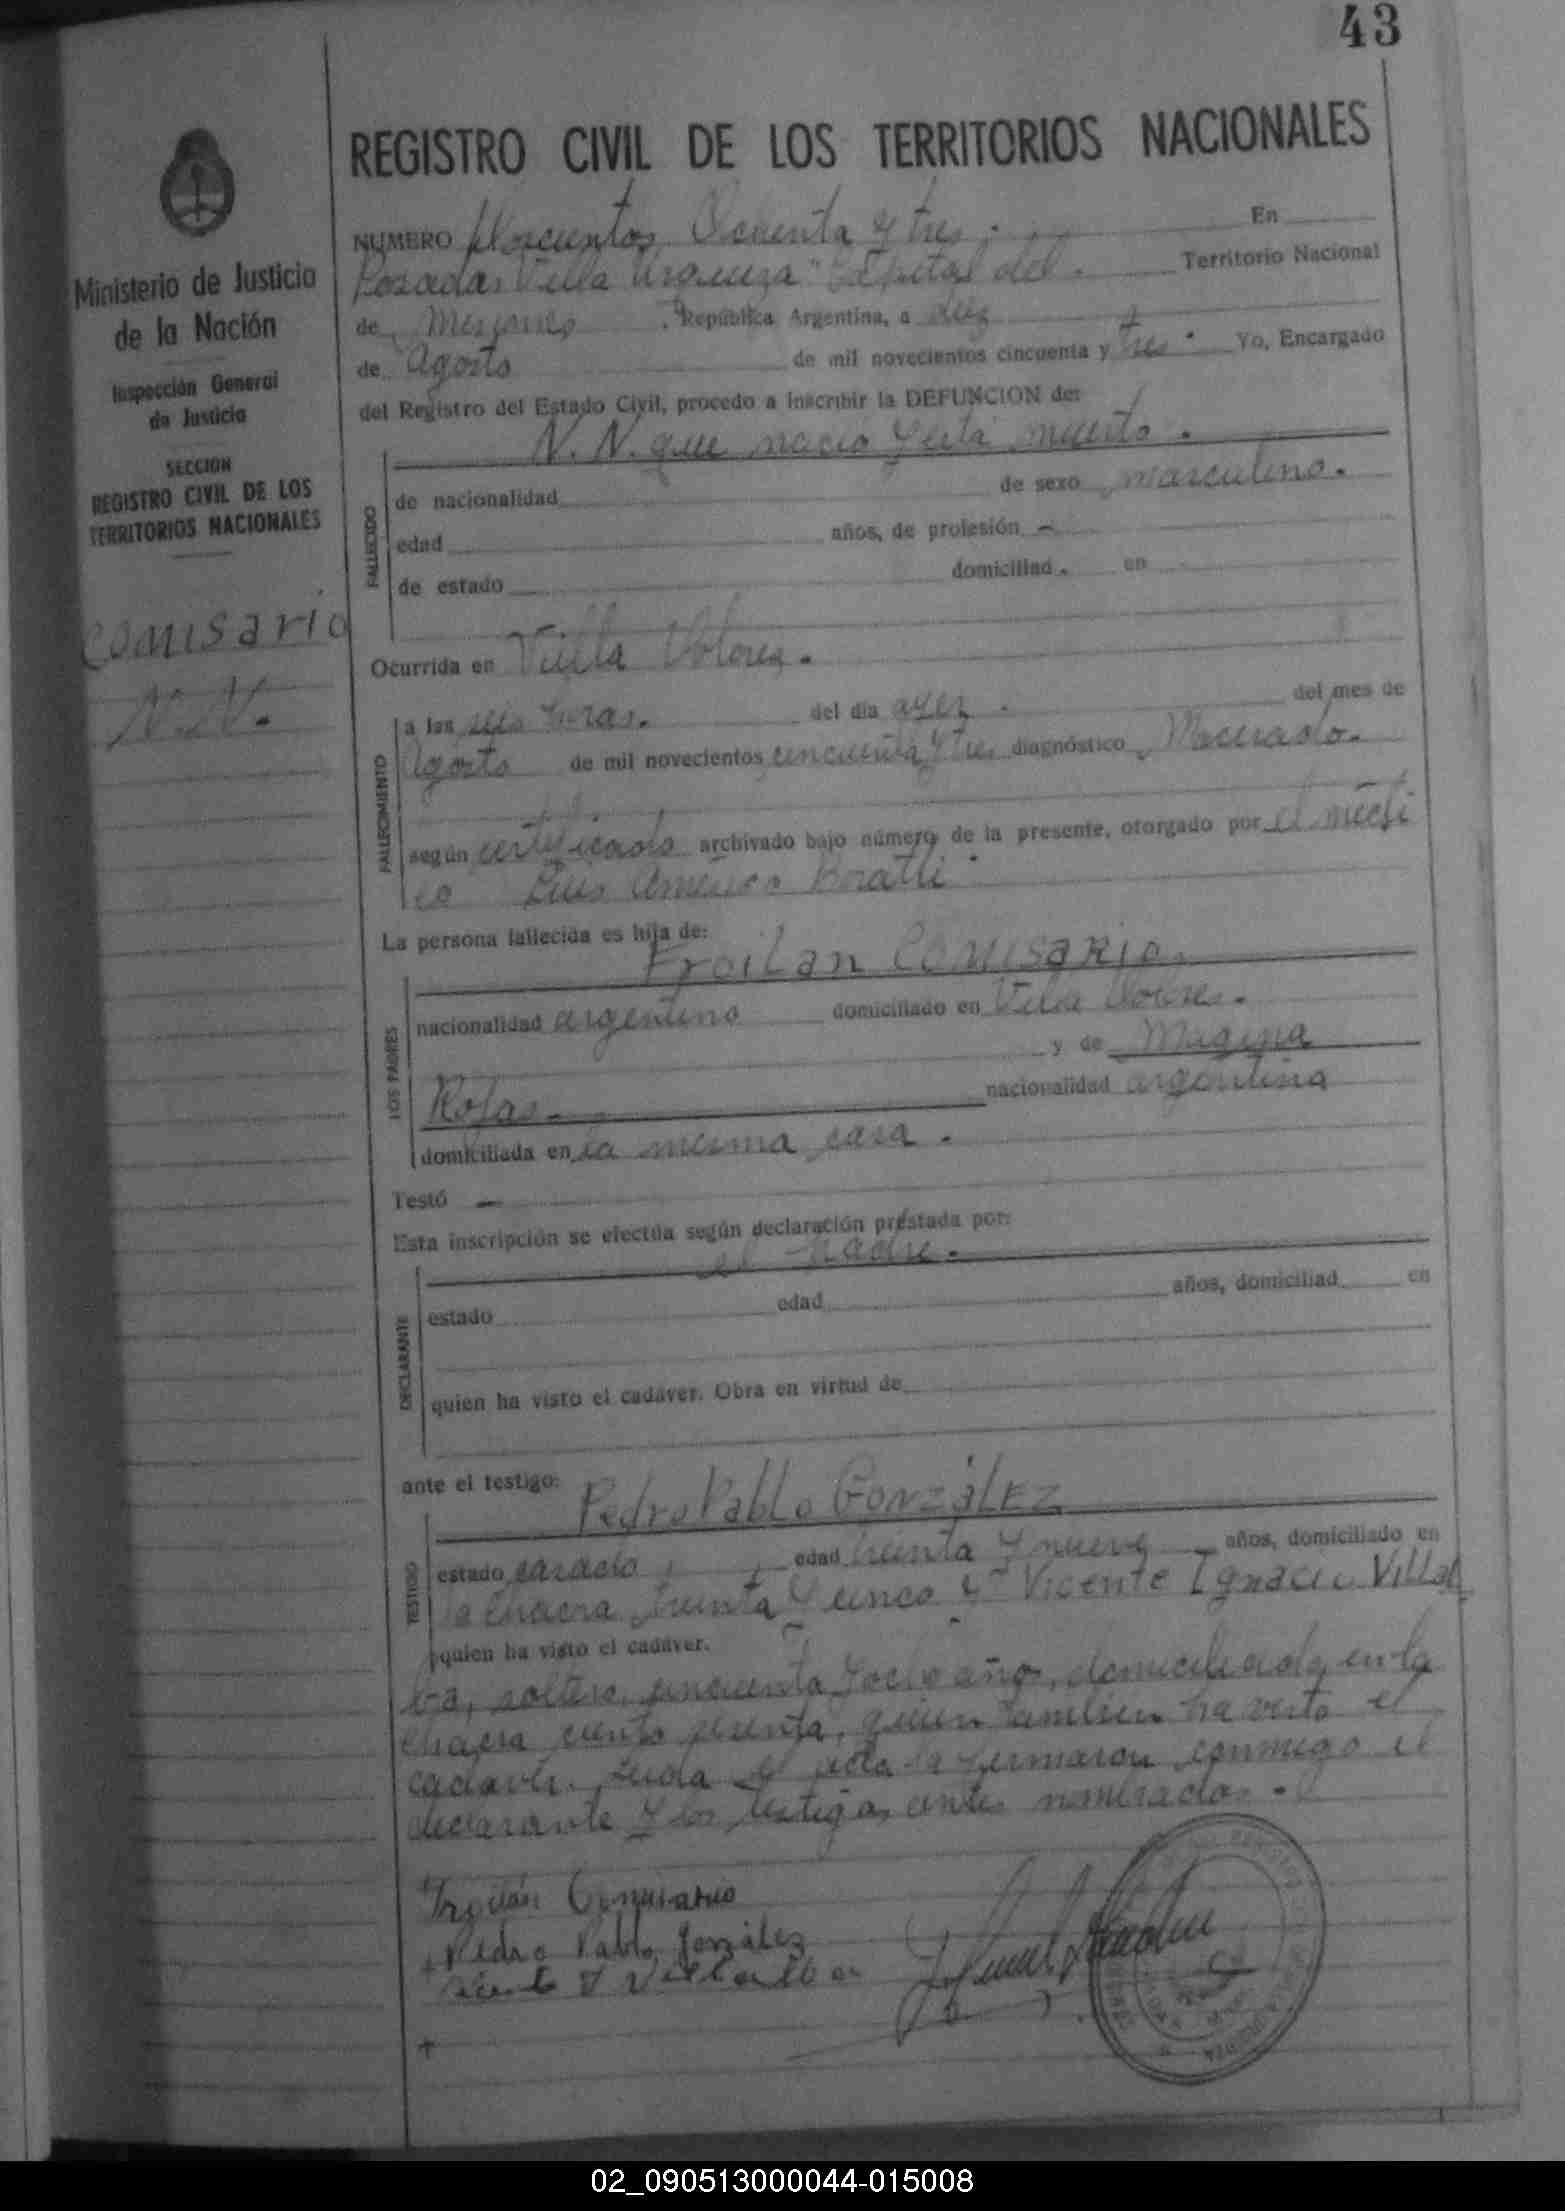 43
REGISTRO CIVIL DE LOS TERRITORIOS NACIONALES
Ministerio de Justicia
de la Nación
Inspección General
de Justicia
SECCION
REGISTRO CIVIL DE LOS
TERRITORIOS NACIONALES
Comisario
N. N.
NUMERO Doscientos Ochenta y tres. En
Posadas Villa Urquiza "Capital del. Territorio Nacional
de Misiones República Argentina, a diez
de Agosto de mil novecientos cincuenta y tres. Yo, Encargado
del Registro del Estado Civil, procedo a inscribir la DEFUNCION de:
N. N. que nació y está muerto.
FALLECIDO
de nacionalidad de sexo masculino.
edad años, de profesión -
de estado domiciliad. en
Ocurrida en Villa Dolores.
FALLECIMIENTO
a las seis horas. del día ayer. del mes de
Agosto de mil novecientos cincuenta y tres diagnóstico Macerado.
según certificado archivado bajo número de la presente, otorgado por el médi
co Luis Américo
La persona fallecida es hija de:
Froilan Comisario.
LOS PADRES
nacionalidad argentino domiciliado en Villa Dolores.
y de
Rojas. nacionalidad argentina
domiciliada en la misma casa.
Testó -
Esta inscripción se efectúa según declaración prestada por:
el padre.
DECLARANTE
estado edad años, domiciliad en
quien ha visto el cadáver. Obra en virtud de
ante el testigo:
Pedro Pablo González
TESTIGO
estado casado, edad treinta y nueve años, domiciliado en
la chacra treinta y cinco y Vicente Ignacio Villal
quien ha visto el cadáver.
ba, soltero, cincuenta y ocho años, domiciliado en la
chacra ciento, quien también ha visto el
cadáver. Leida el acta la firmaron conmigo el
declarante y los testigos antes nombrados.
Froilán Comisario
Pedro Pablo González
Vicente I Villalba
02_090513000044-015008